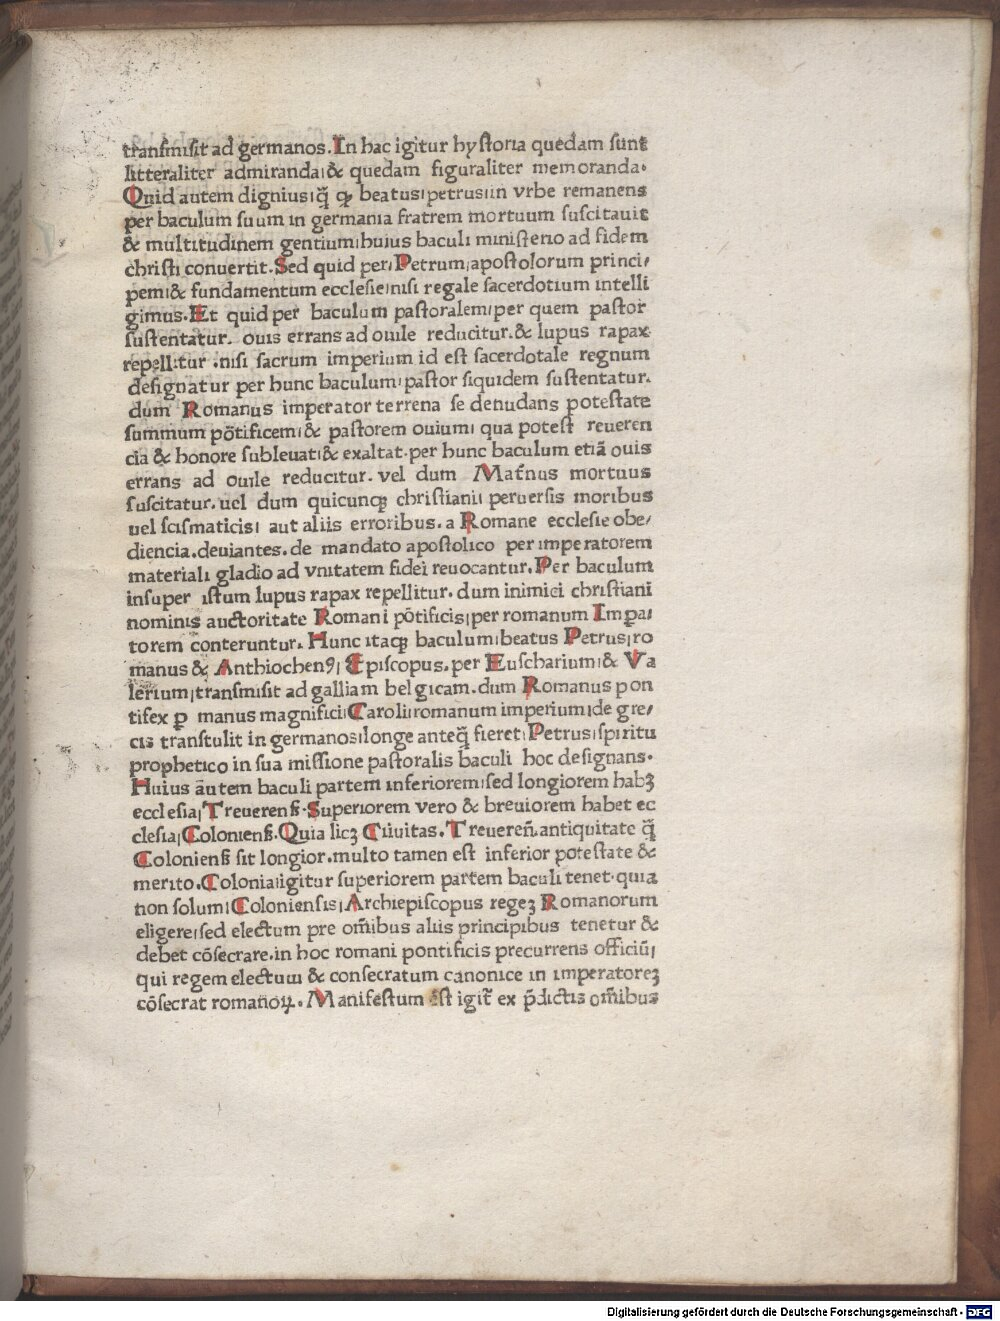 tranſmiſit ad germanos. In hac igitur hyſtoria quedam ſunt
litteraliter admiranda ı & quedam figuraliter memoranda.
Quid autem dignius ı q̃ ꝙ beatus ı petrus ı in vrbe remanens
per baculum ſuum in germania fratrem mortuum ſuſcitauit
& multitudinem gentium ı huius baculi miniſterio ad fidem
chriſti conuertit. Sed quid per ı Petrum ı apoſtolorum princi/
pem ı & fundamentum eccleſie ı niſi regale ſacerdotium intelli
gimus. Et quid per baculum paſtoralem ı per quem paſtor
ſuſtentatur. ouis errans ad ouile reducitur. & lupus rapax
repellitur .niſi ſacrum imperium id eſt ſacerdotale regnum
deſignatur per hunc baculum ı paſtor ſiquidem ſuſtentatur.
dum Romanus imperator terrena ſe denudans poteſtate
ſummum põtificem ı & paſtorem ouium ı qua poteſt reueren
cia & honore ſubleuat ı & exaltat. per hunc baculum etiã ouis
errans ad ouile reducitur. vel dum Mat̃nus mortuus
ſuſcitatur. uel dum quicunqꝫ chriſtiani ı peruerſis moribus
uel ſciſmaticis ı aut aliis erroribus. a Romane eccleſie obe/
diencia. deuiantes. de mandato apoſtolico per imperatorem
materiali gladio ad vnitatem fidei reuocantur. Per baculum
inſuper iſtum lupus rapax repellitur. dum inimici chriſtiani
nominis auctoritate Romani põtificis ı per romanum Impa ı
torem conteruntur. Hunc itaqꝫ baculum ı beatus Petrus ı ro
manus & Anthiochenꝯ ı Epiſcopus. per Euſcharium ı & Va
lerium ı tranſmiſit ad galliam belgicam. dum Romanus pon
tifex ꝑ manus magnifici ı Caroli ı romanum imperium ı de gre/
cis tranſtulit in germanos ı longe anteq̃ fieret ı Petrus ı ſpiritu
prophetico in ſua miſſione paſtoralis baculi hoc deſignans.
Huius autem baculi partem inferiorem ı ſed longiorem habꝫ
eccleſia ı Treuerenß. Superiorem vero & breuiorem habet ec
cleſia ı Colonienß. Quia licꝫ Ciuitas. Treuereñ. antiquitate q̃
Colonienß ſit longior. multo tamen eſt inferior poteſtate &
merito. Colonia ı igitur ſuperiorem partem baculi tenet. quia
non ſolum ı Colonienſis ı Archiepiſcopus regeꝫ Romanorum
eligere ı ſed electum pre om̃ibus aliis principibus tenetur &
debet cõſecrare. in hoc romani pontificis precurrens officiũ ı
qui regem electum & conſecratum canonice in imperatoreꝫ
cõſecrat romanoꝝ. Manifeſtum eſt igit̃ ex p̃dictis om̃ibus
Digitalisierung gefördert durch die Deutsche Forschungsgemeinschaft - DFG